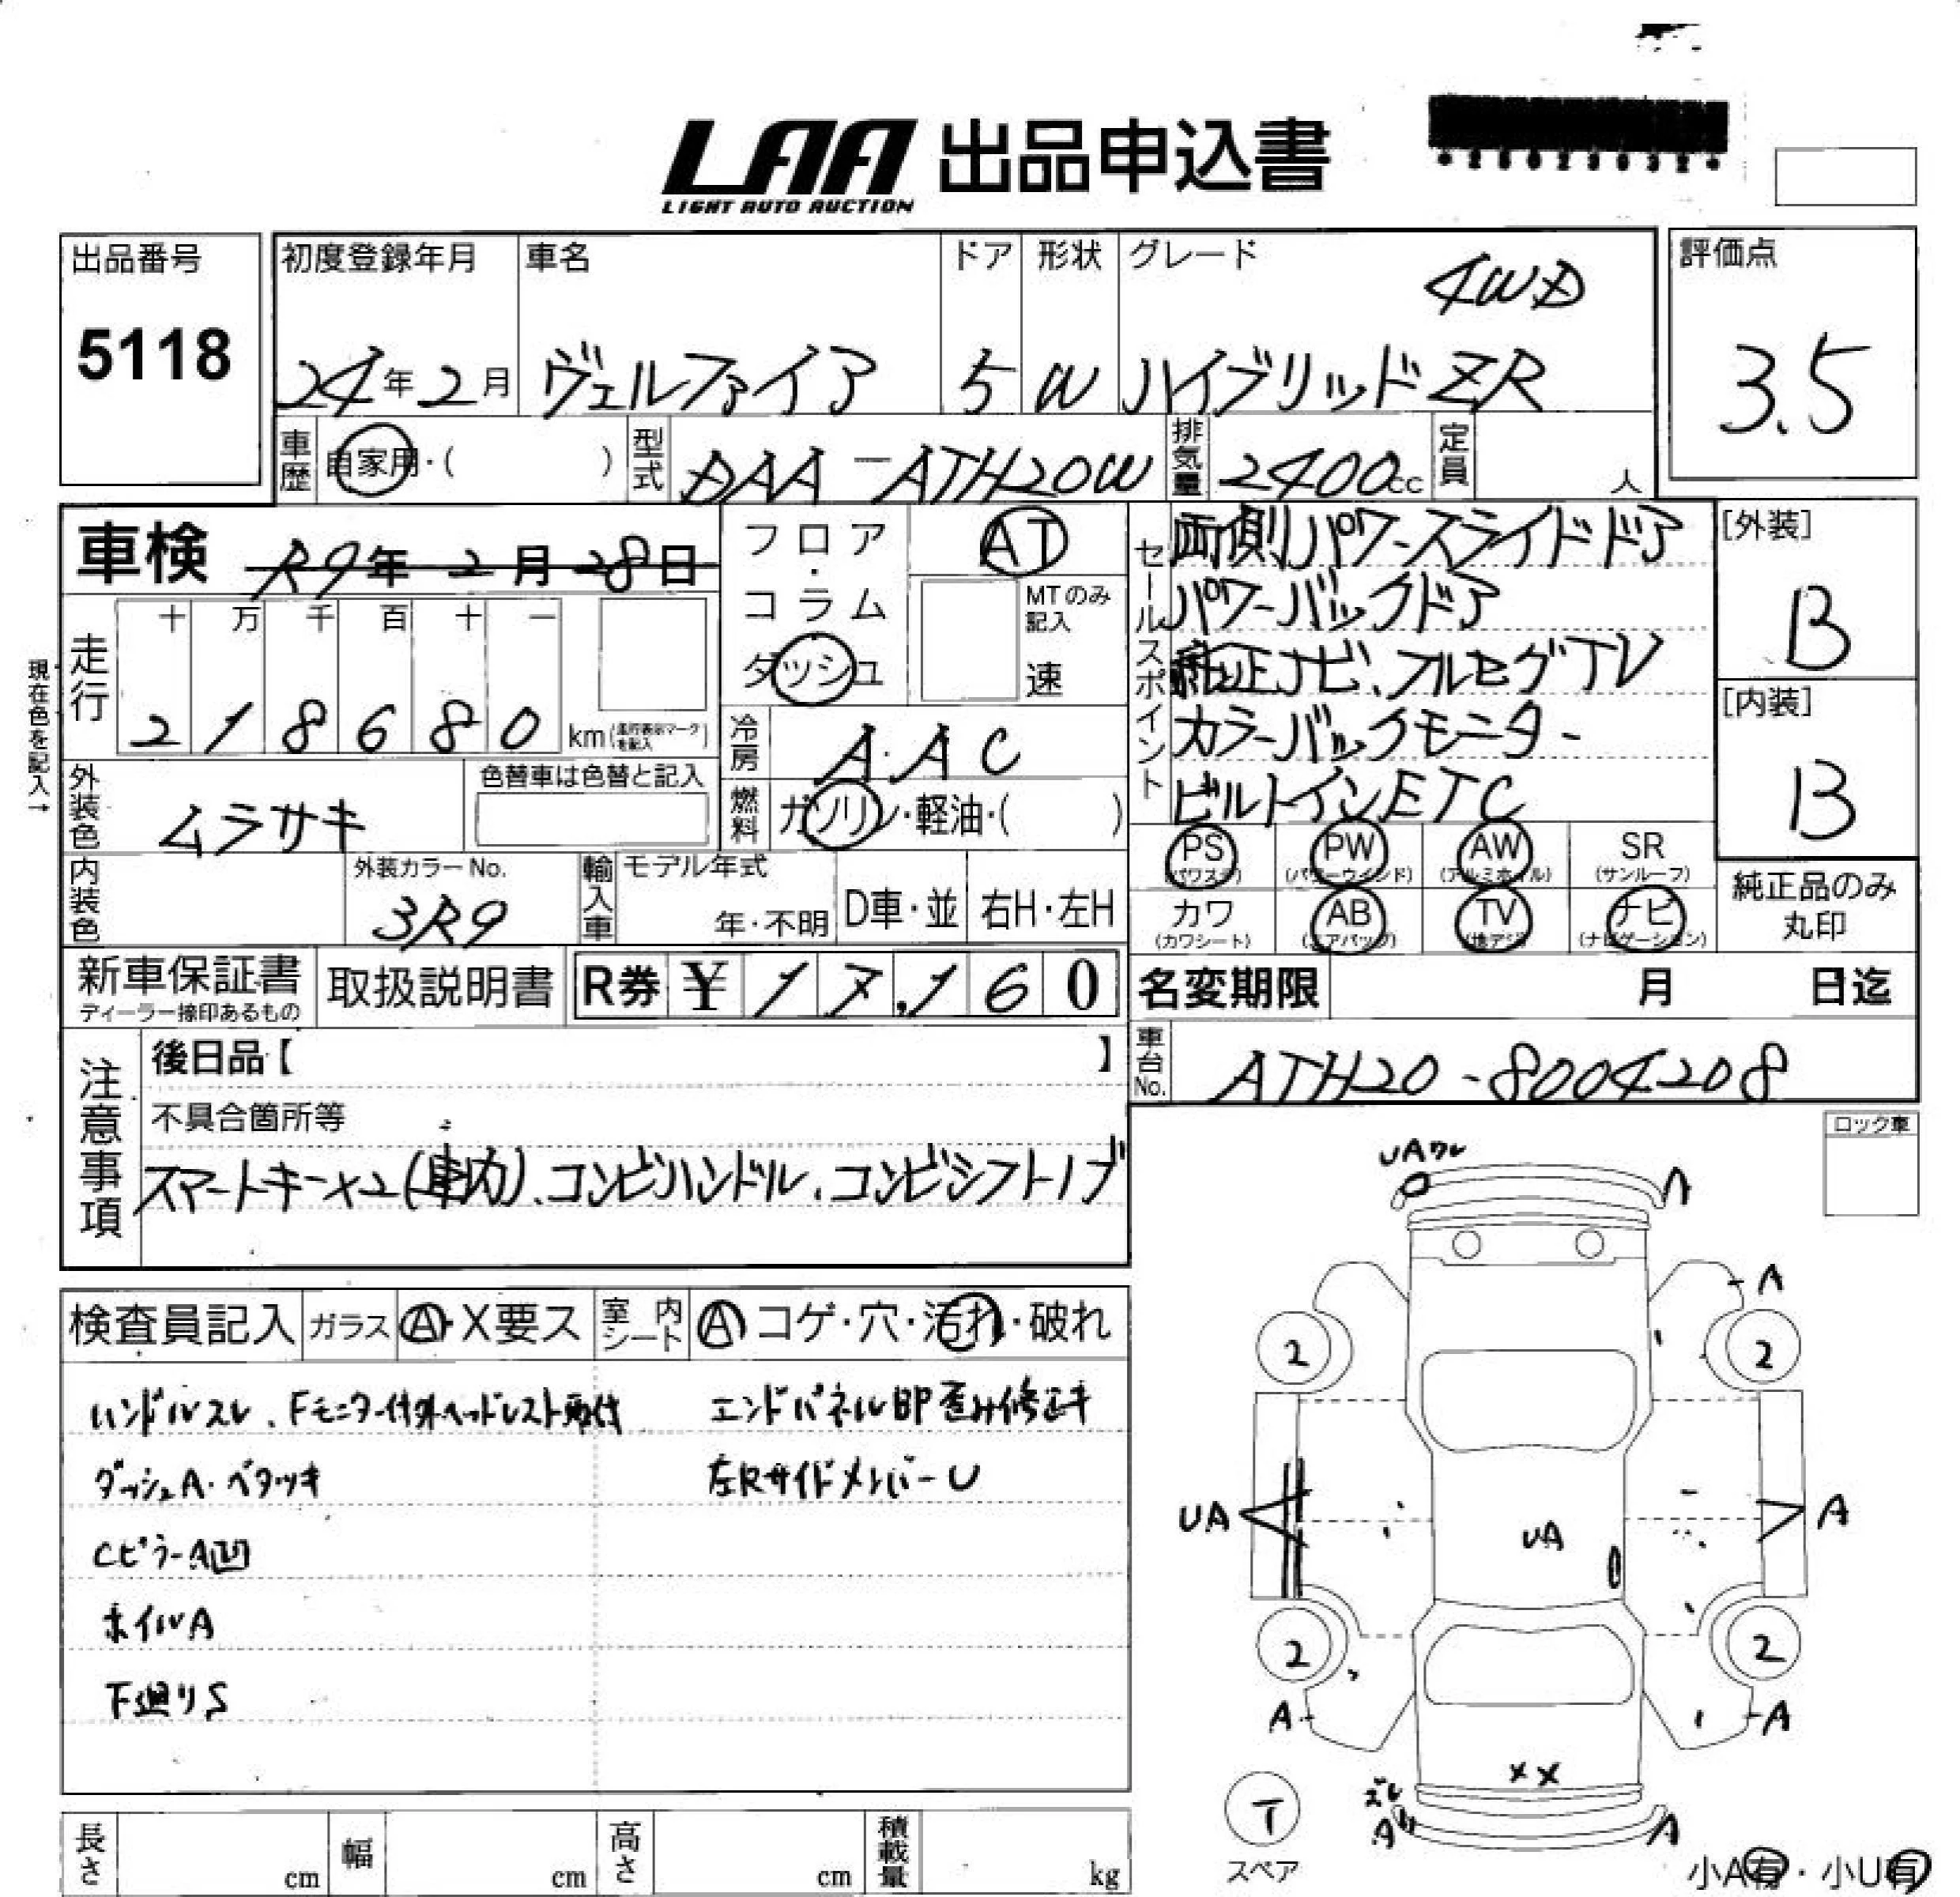 LAA 出品申込書
LIGHT AUTO AUCTION
出品番号
5118
初度登録年月
24年2月
車名
ヴェルファイア
ドア
5
形状
W
グレード
4WD
ハイブリッド ZR
評価点
3.5
車歴 自家用・( )
型式 DAA-ATH20W
排気量 2400cc
定員 人
車検 R9年2月28日
走行
十 万 千 百 十 一
2 1 8 6 8 0 km
現在色を記入→
フロア・コラム
ダッシュ
AT
MTのみ記入
速
冷房 A.A C
燃料 ガソリン・軽油・( )
外装色 ムラサキ
色替車は色替と記入
内装色
外装カラーNo.
3R9
輸入車 モデル年式
年・不明 D車・並 右H・左H
セールスポイント
両側パワースライドドア
パワーバックドア
純正ナビ、フルセグTV
カラーバックモニター
ビルトインETC
[外装]
B
[内装]
B
PS (パワステ) PW (パワーウインド) AW (アルミホイル) SR (サンルーフ)
カワ (カワシート) AB (エアバッグ) TV (地デジ) ナビ (ナビゲーション)
純正品のみ丸印
新車保証書
ディーラー捺印あるもの
取扱説明書
R券 ¥ 17,160
名変期限 月 日迄
車台No. ATH20-8004208
注意事項
後日品【 】
不具合箇所等
スマートキー×2(車内)、コンビハンドル、コンビシフトノブ
ロック車
検査員記入 ガラス A・X要ス 室内シート A コゲ・穴・汚れ・破れ
ハンドルスレ、Fモニター付外ヘッドレスト取付
エンドパネル部歪み修正キ
ダッシュA・ベタツキ
左Rサイドメンバー U
CピラーA凹
ホイルA
下廻りS
UAワレ
A
A
2
2
UA
UA
A
2
2
A
A
XX
ズレ
A
A
T
スペア
小A有・小U有
長さ cm 幅 cm 高さ cm 積載量 kg